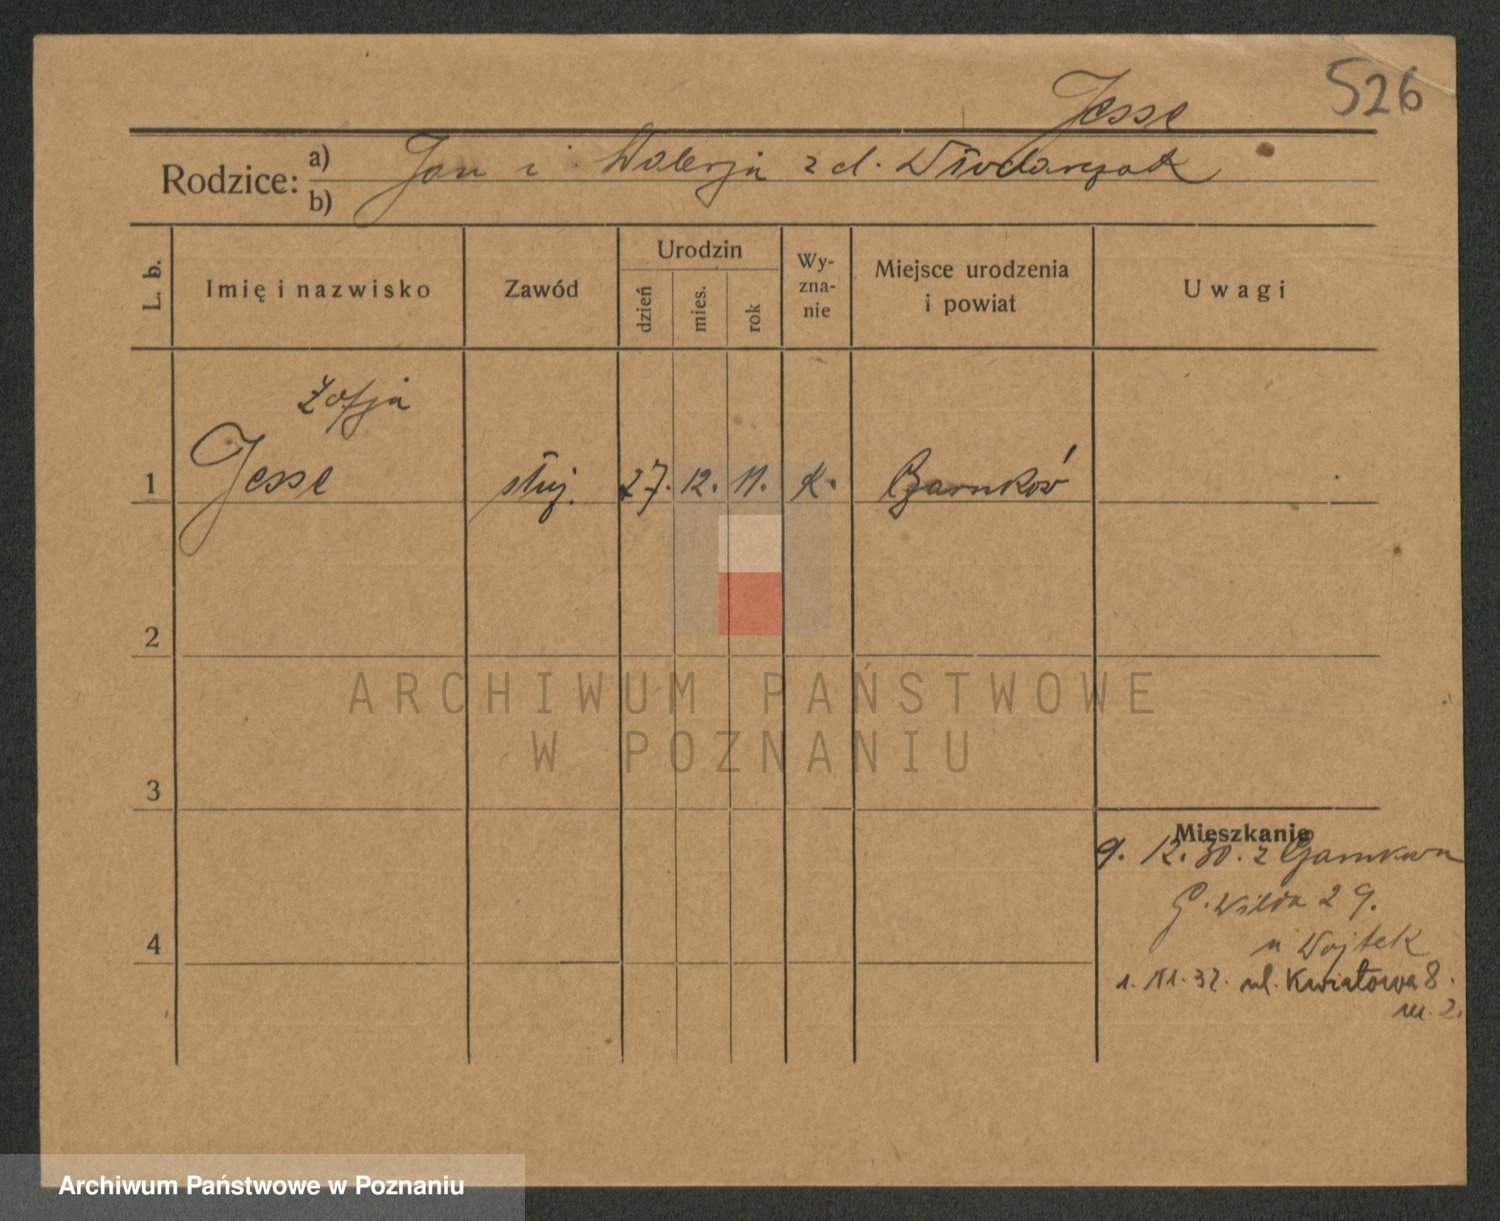 Jesse 526
Rodzice: a) Jan i Walerja z d. Włodarczak
b)
L. b. Imię i nazwisko Zawód Urodzin dzień mies. rok Wy-zna-nie Miejsce urodzenia i powiat Uwagi
Zofja
1 Jesse służ. 27. 12. 11. k. Czarnków
2
ARCHIWUM PAŃSTWOWE
W POZNANIU
3
Mieszkanie
9. 12. 30. z Czarnkowa
G. Wilda 29.
u Wojtek
4
1. 32. ul. Kwiatowa 8.
m. 2.
Archiwum Państwowe w Poznaniu